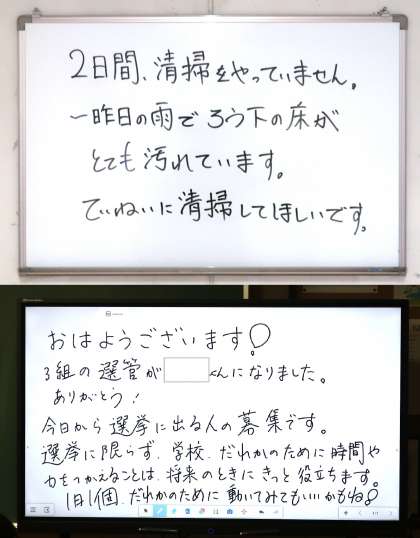 2日間、清掃をやっていません。
一昨日の雨でろう下の床が
とても汚れています。
ていねいに清掃してほしいです。
おはようございます!
3組の選管が くんになりました。
ありがとう!
今日から選挙に出る人の募集です。
選挙に限らず、学校、だれかのために時間や
力をつかえることは、将来のときにきっと役立ちます。
1日1個、だれかのために動いてみても……かもね!